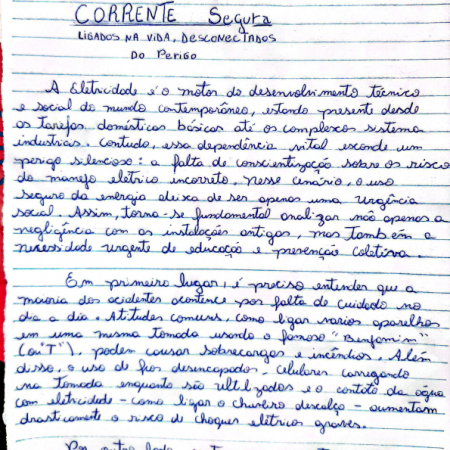 CORRENTE Segura
LIGADOS NA VIDA, DESCONECTADOS
DO PERIGO
A Eletricidade é o motor do desenvolvimento técnico
e social do mundo contemporâneo, estando presente desde
as tarefas domésticas básicas até os complexos sistema
industriais. Contudo, essa dependência vital esconde um
perigo silencioso: a falta de conscientização sobre os risco
do manejo elétrico incorreto, nesse cenário, o uso
seguro da energia deixa de ser apenas uma urgência
social. Assim, torna-se fundamental analizar não apenas a
negligência com as instalações antigas, mas também a
necessidade urgente de educação e prevenção coletiva.
Em primeiro lugar, é preciso entender que a
maioria dos acidentes acontence por falta de cuidado no
dia a dia. Atitudes comuns, como ligar varios aparelhos
em uma mesma tomada usando o famoso "Benjamim"
(ou "T"), podem causar sobrecargas e incêndios. Além
disso, o uso de fios desencapados, celulares carregando
na tomada enquanto são utilizados e o contato da água
com eletricidade - como ligar o chuveiro descalço - aumentam
drasticamente o risco de choques elétricos graves.
Por outro lado